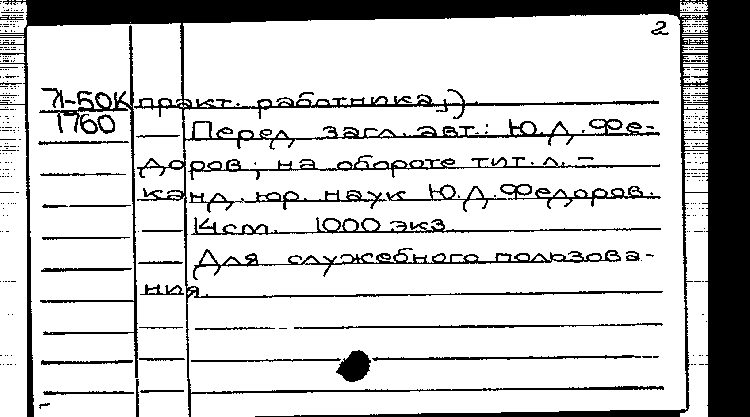 2
Л-50К практ. работника;)
1760
Перед загл. авт.: Ю.Д.Фе-
доров; на обороте тит.л. –
канд. юр. наук Ю.Д.Федоров.
14см. 1000 экз.
Для служебного пользова-
ния.